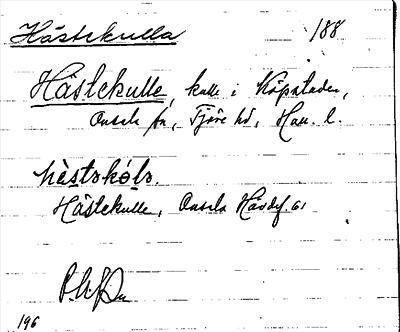 Hästekulla 188
Hästekulle, kulle i Köpstaden,
Onsala sn, Fjäre hd, Hall. l.
hèstəkɵ́lə.
Hästekulle, Onsala Hävdf. 61
196